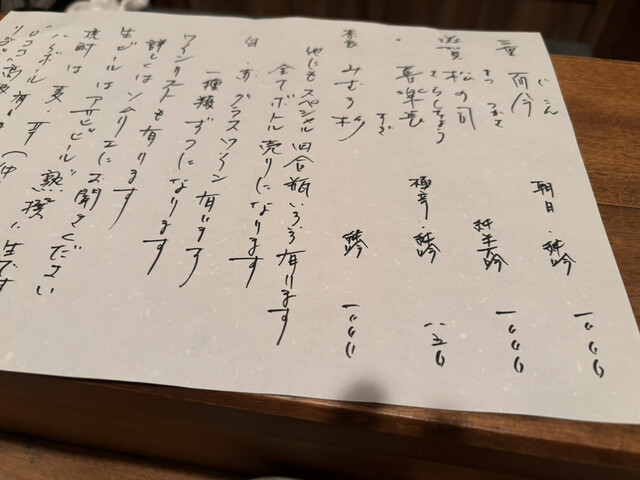 三重 而今 じこん 朝日・純吟 一、〇〇〇
滋賀 松の司 まつのつかさ 純米吟 一、〇〇〇
〃 喜楽長 きらくちょう 極辛・純吟 八五〇
みむろ杉 すぎ 純吟 一、〇〇〇
他にもスペシャル四合瓶いろいろ有ります
全てボトル売りになります
白・赤 グラスワイン有ります
一種類ずつになります
ワインリストも有ります
詳しくはソムリエにお聞きください
生ビールはアサヒビール 熟撰
焼酎は 麦・芋
ハイボール